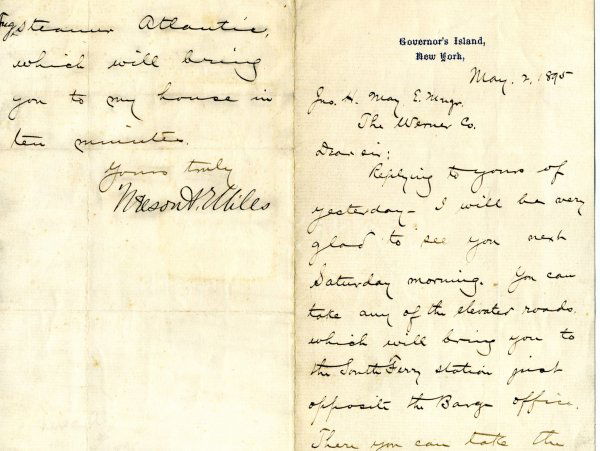 Governor's Island,
New York,
May. 2, 1895
Jno. H. May E. Mngr.
The Werner Co.
Dear sir;
Replying to yours of
yesterday - I will be very
glad to see you next
Saturday morning. You can
take any of the elevated roads
which will bring you to
the South Ferry station just
opposite the Barge office.
There you can take the
Tug steamer Atlantic,
which will bring
you to my house in
ten minutes.
Yours truly
Nelson A. Miles